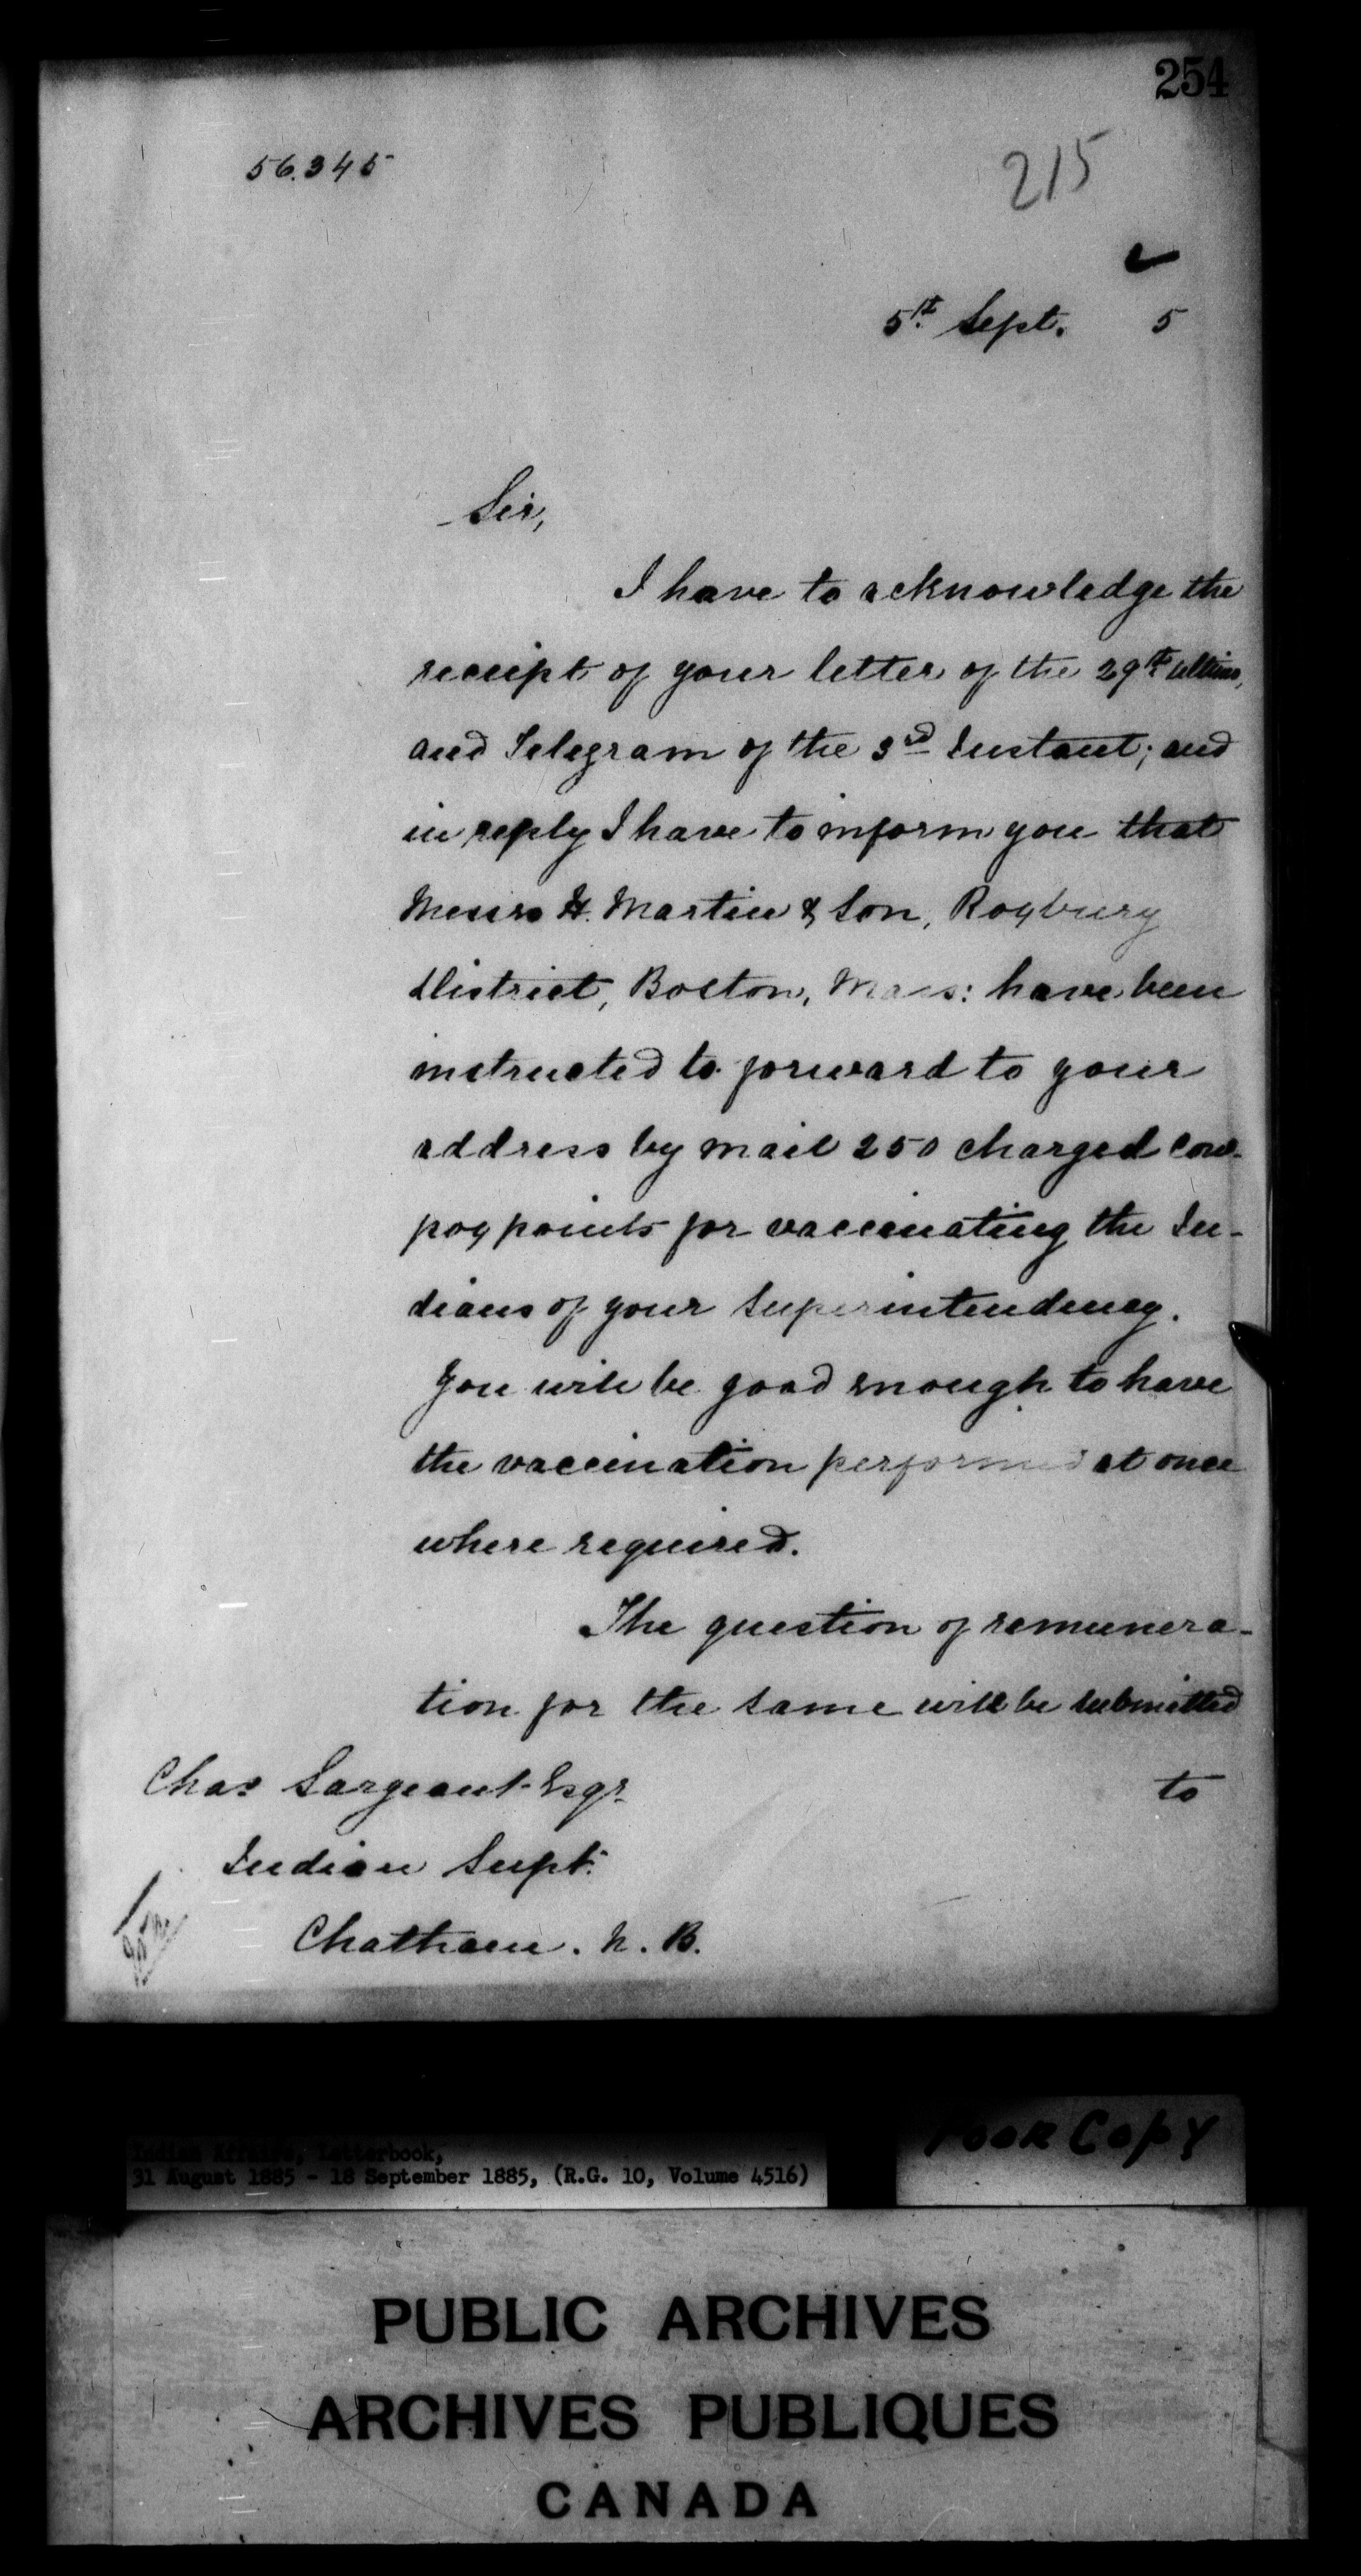 254
56.345
215
5th Sept. 5
Sir,
I have to acknowledge the
receipt of your letter of the 29th Ultimo,
and Telegram of the 3rd Instant; and
in reply I have to inform you that
Messrs H. Martin & Son, Roxbury
District, Boston, Mass: have been
instructed to forward to your
address by mail 250 charged cow-
pox points for vaccinating the In-
dians of your Superintendency.
You will be good enough to have
the vaccination performed at once
where required.
The question of remunera-
tion for the same will be submitted
to
Chas Sargeant Esqr.
Indian Supt.
Chatham. N. B.
Indian Affairs, Letterbook,
31 August 1885 - 18 September 1885, (R.G. 10, Volume 4516)
Poor Copy
PUBLIC ARCHIVES
ARCHIVES PUBLIQUES
CANADA